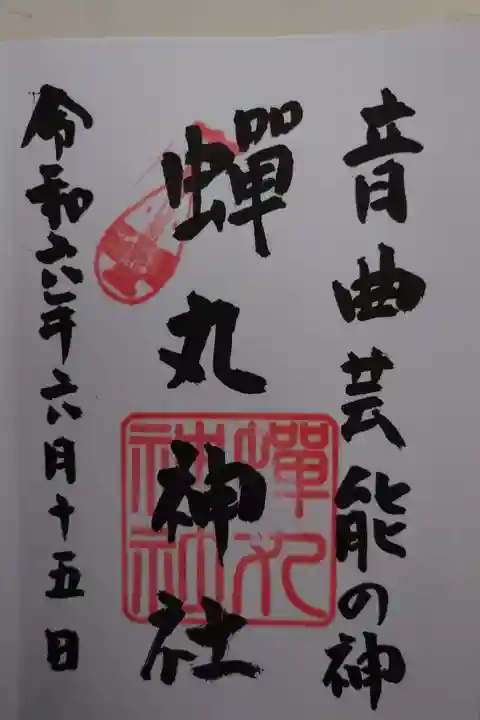 音曲芸能の神
蝉丸神社
蝉丸神社
令和六年六月十五日